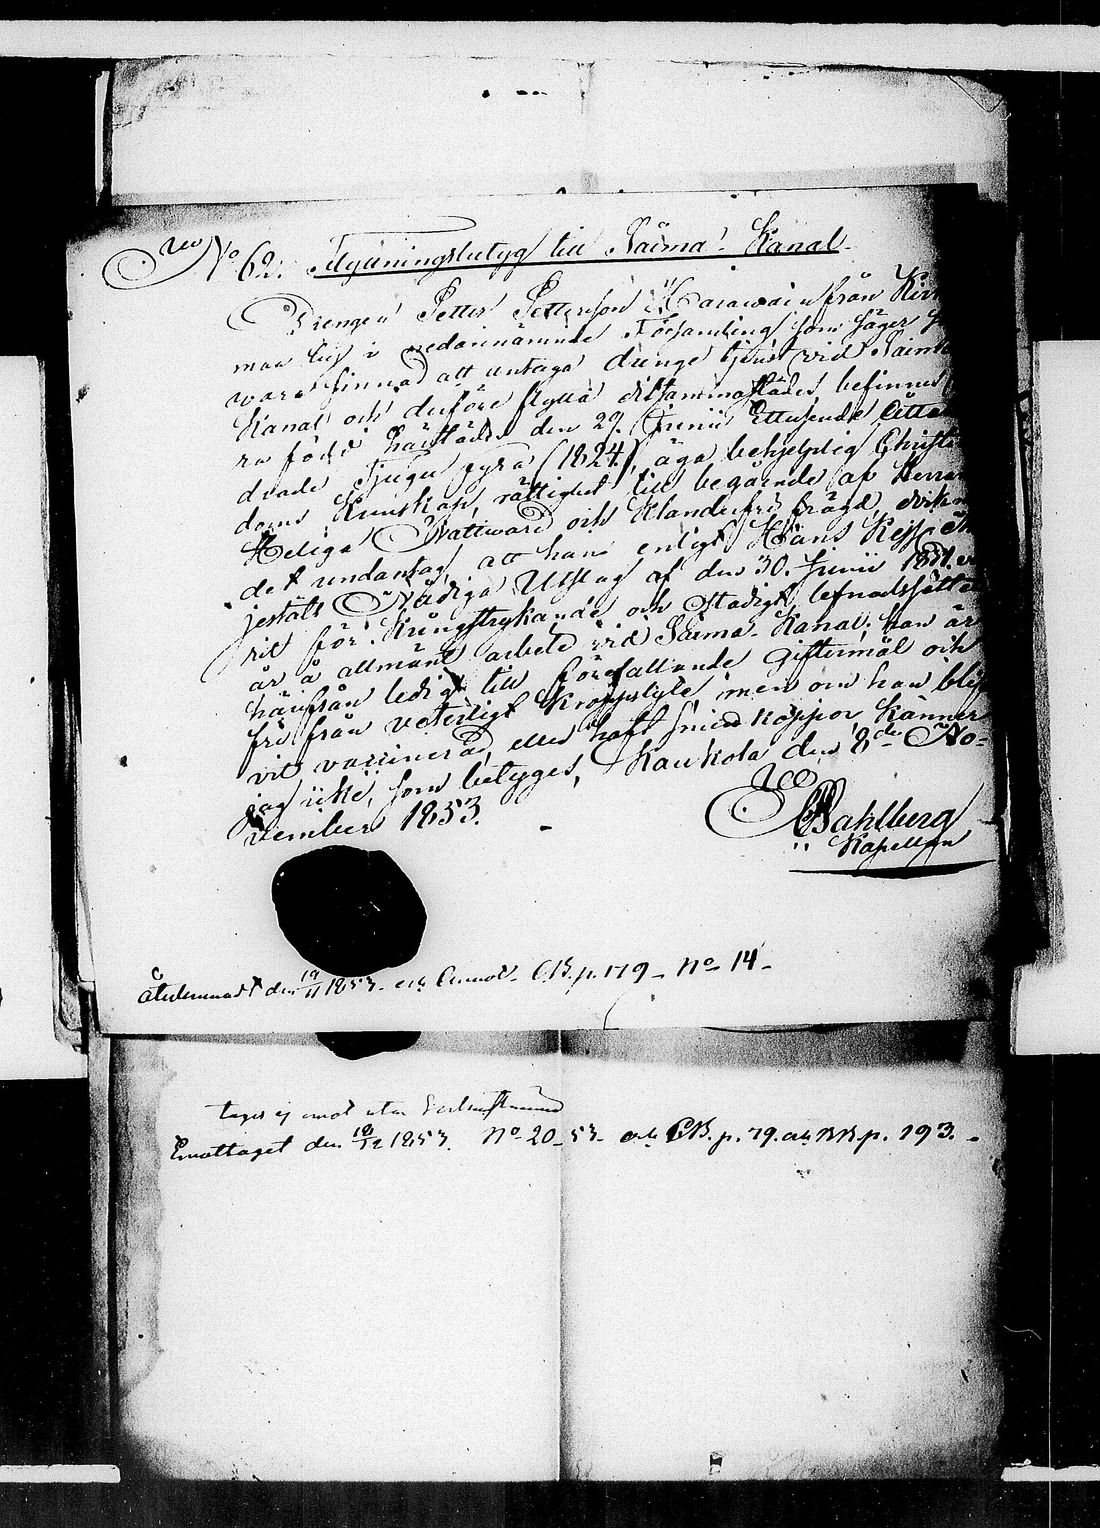 No 62. Flyttningsbetyg till Saima Kanal
Drengen Petter Petterson Harawain från Kir
maa by i nedannämnde Församling som säger
vara sinnad att antaga drenge tjenst vid Saima
Kanal och derföre flytta ditsammastädes, befinnes
ra född härstädes den 29. Junii Ettusende Åtta
drade Tjugu fyra (1824), äga behjelplig Christen
doms Kunskap, rättighet till begående af Herrans
Heliga Nattward och Klanderfri frägd,
det undantag, att han enligt Hans Kejs.
jestäts Nådiga Utslag af den 30. Junii
rit för Kringstrykande och Stadigt lefnadssätt
år å allmänt arbete vid Saima Kanal; han är
härifrån ledig till förefallande giftermål och
fri från veterligt Kroppslyte, men om han blif
vit vaccinerad, eller haft smiekoppor, känner
jag icke, som betyges, Kaukola den 8de No-
vember 1853.
Dahlberg
Kapellan
Återlemnadt den 19/11 1853. och Annot. C.B. p. 179 - No 14 -
tages ej emot utan
Emottaget den 18/12 1853. No 20 - 53 - och C.B. p. 79. och p. 193. -